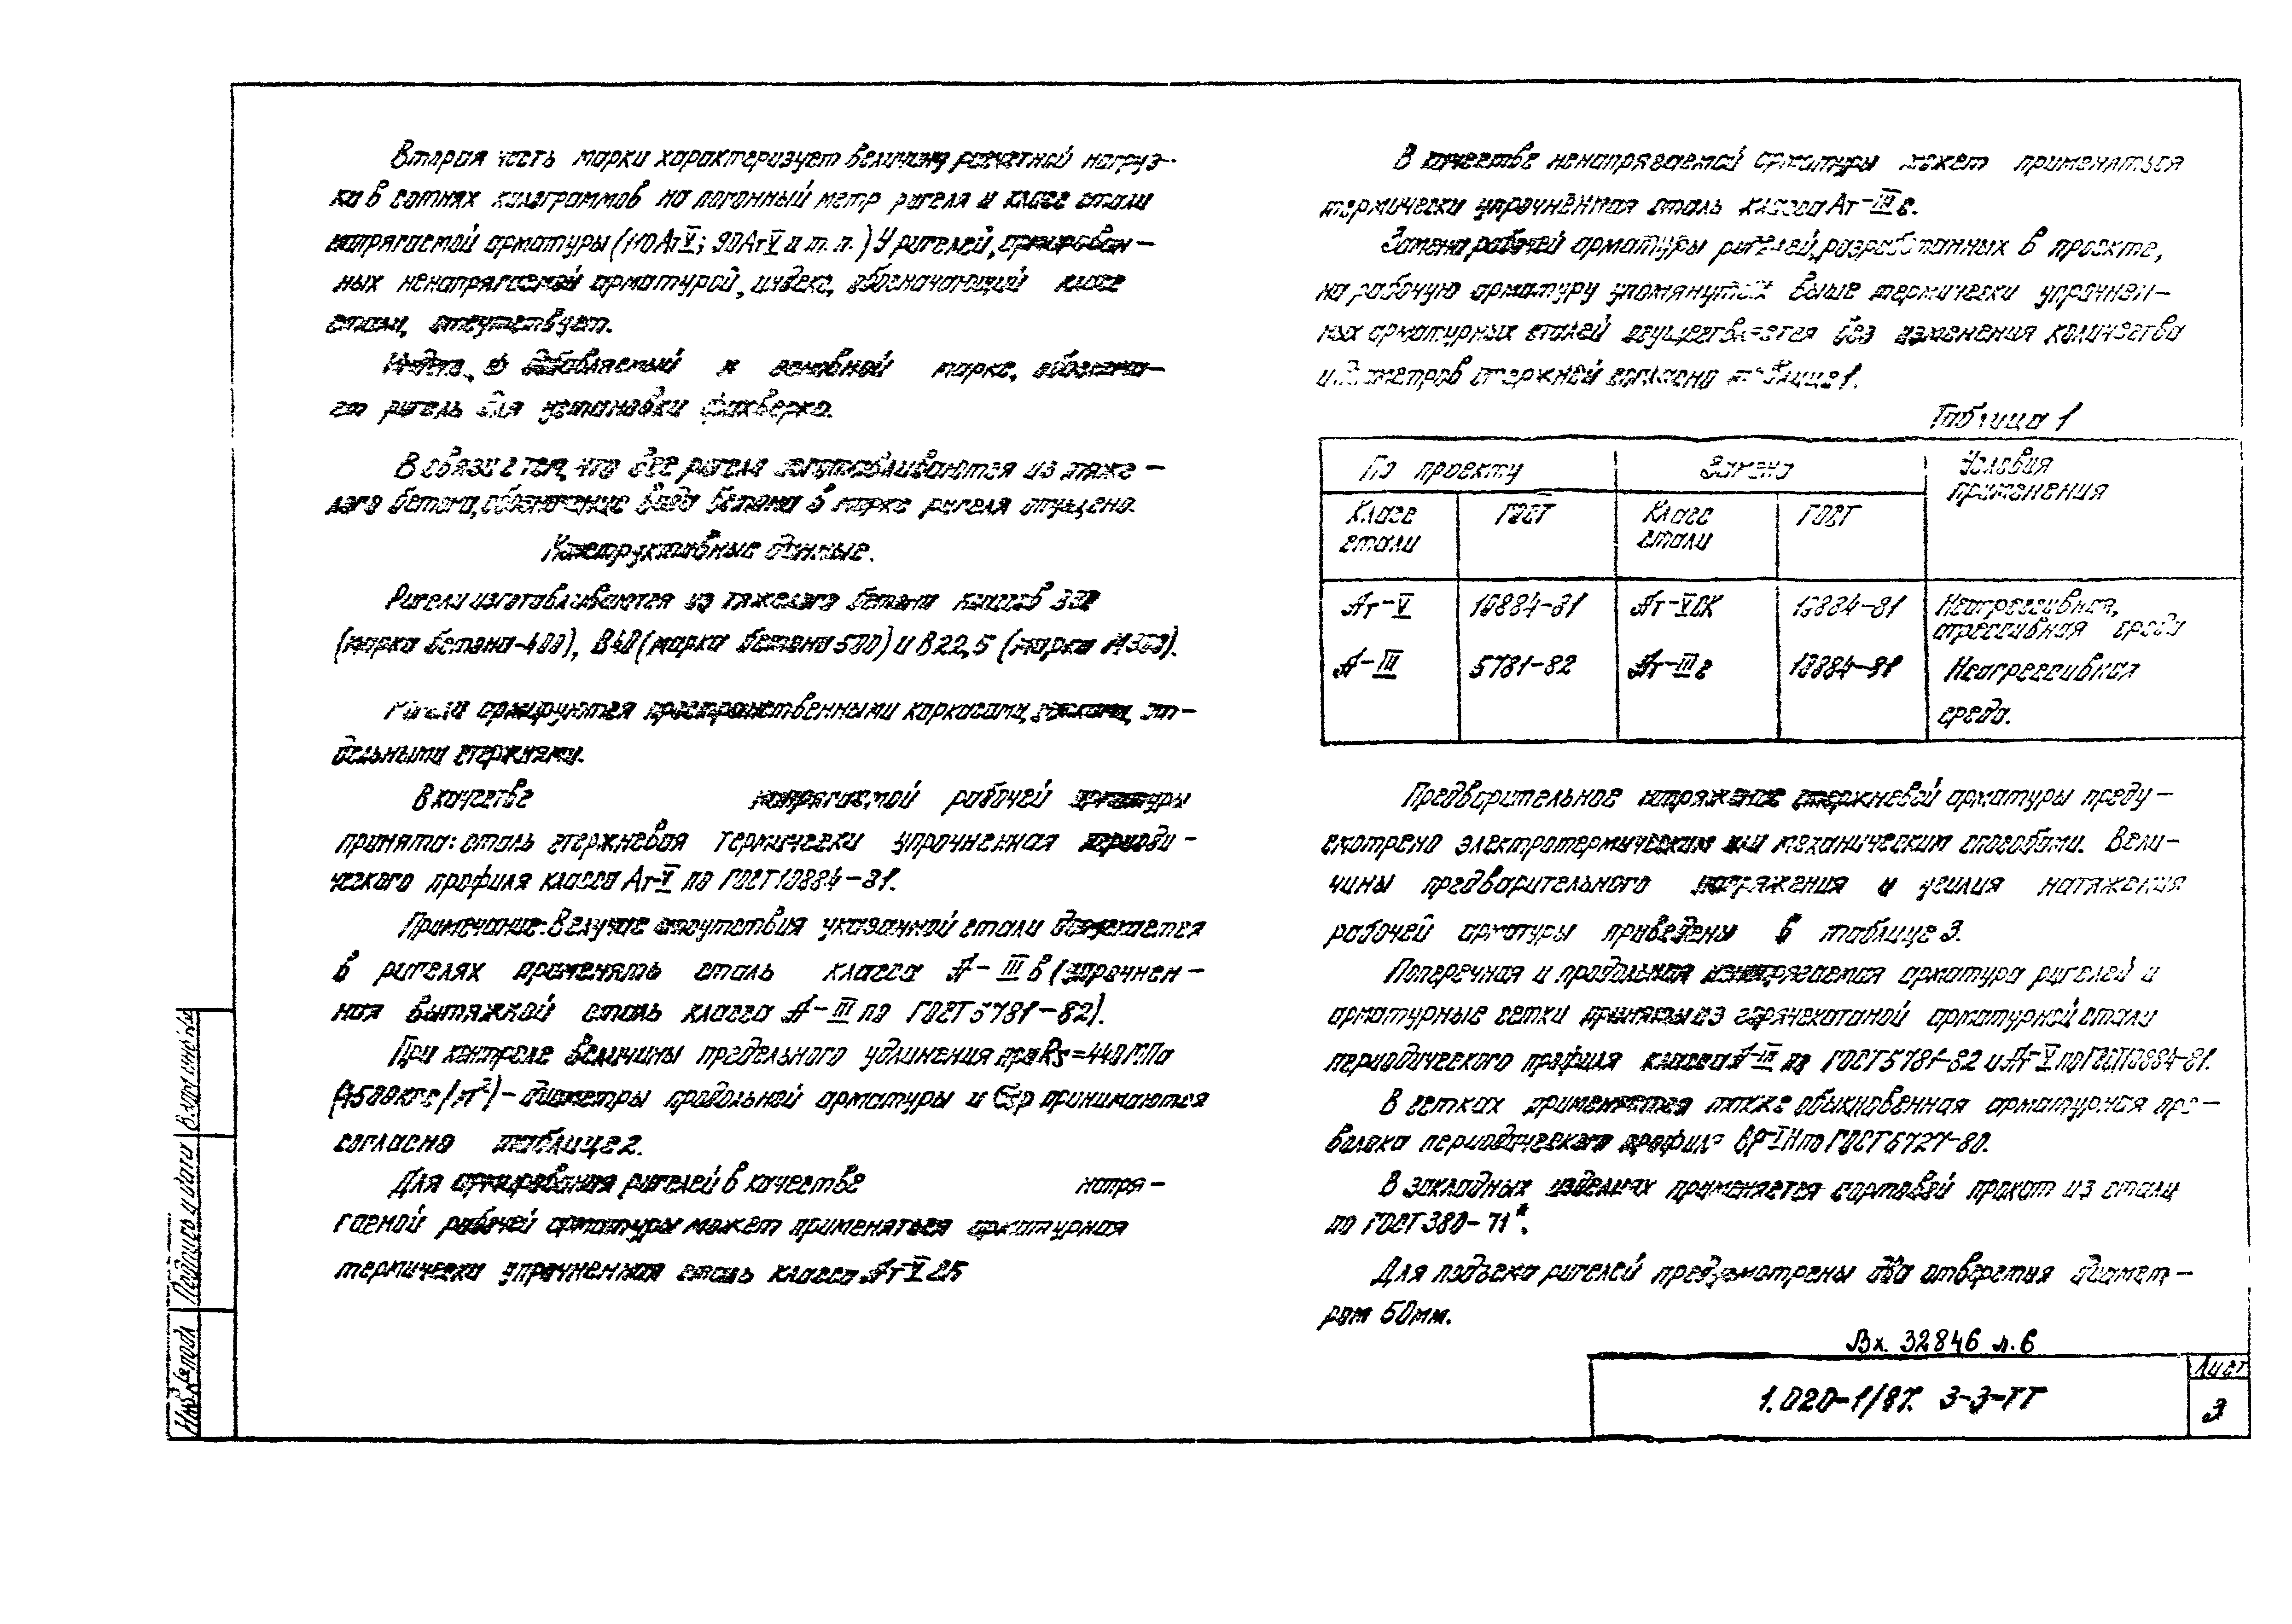 Вторая часть марки характеризует величину расчетной нагруз-
ки в сотнях килограммов на погонный метр ригеля и класс стали
напрягаемой арматуры (110АтV; 90АтV и т.п.) У ригелей, армирован-
ных ненапрягаемой арматурой, индекс, обозначающий класс
стали, отсутствует.
Индекс, добавляемый к основной марке, обознача-
ет ригель для установки фахверка.
В связи с тем, что все ригели изготавливаются из тяже-
лого бетона, обозначение вида бетона в марке ригеля опущено.
Конструктивные данные.
Ригели изготавливаются из тяжелого бетона классов
(марка бетона-400), В40 (марка бетона 500) и В22,5 (марка М300).
Ригели армируются пространственными каркасами, сетками, от-
дельными стержнями.
В качестве напрягаемой рабочей арматуры
принята: сталь стержневая термически упрочненная периоди-
ческого профиля класса Ат-V по ГОСТ 10884-81.
Примечание: В случае отсутствия указанной стали допускается
в ригелях применять сталь класса А-III в (упрочнен-
ная вытяжкой сталь класса А-III по ГОСТ 5781-82).
При контроле величины предельного удлинения при Rs=440МПа
(4500кгс/м²)- диаметры продольной арматуры и принимаются
согласно таблице 2.
Для армирования ригелей в качестве напря-
гаемой рабочей арматуры может применяться арматурная
термически упрочненная сталь класса Ат V СК
В качестве ненапрягаемой арматуры может применяться
термически упрочненная сталь класса Ат-III с.
Замена рабочей арматуры ригелей, разработанных в проекте,
на рабочую арматуру упомянутых выше термически упрочнен-
ных арматурных сталей осуществляется без изменения количества
и диаметров стержней согласно таблице 1.
Таблица 1
По проекту Замена Условия применения
Класс стали ГОСТ Класс стали ГОСТ
Ат-V 10884-81 Ат-VСК 10884-81 Неагрессивная, агрессивная среда
А-III 5781-82 Ат-III с 10884-81 Неагрессивная
среда.
Предварительное напряжение стержневой арматуры преду-
смотрено электротермическим или механическим способами. Вели-
чины предварительного напряжения и усилия натяжения
рабочей арматуры приведены в таблице 3.
Поперечная и продольная ненапрягаемая арматура ригелей и
арматурные сетки приняты из горячекатаной арматурной стали
периодического профиля класса А-III по ГОСТ 5781-82 и Ат-V по ГОСТ 10884-81.
В сетках применяется также обыкновенная арматурная про-
волока периодического профиля ВР-I по ГОСТ 6727-80.
В закладных изделиях применяется сортовой прокат из стали
по ГОСТ 380-71*.
Для подъема ригелей предусмотрены два отверстия диамет-
ром 50мм.
Вх. 32846 л.6
1.020-1/87. 3-3-ТТ
Лист
3
Инв.№ подл.
Подпись и дата
Взам.инв.№